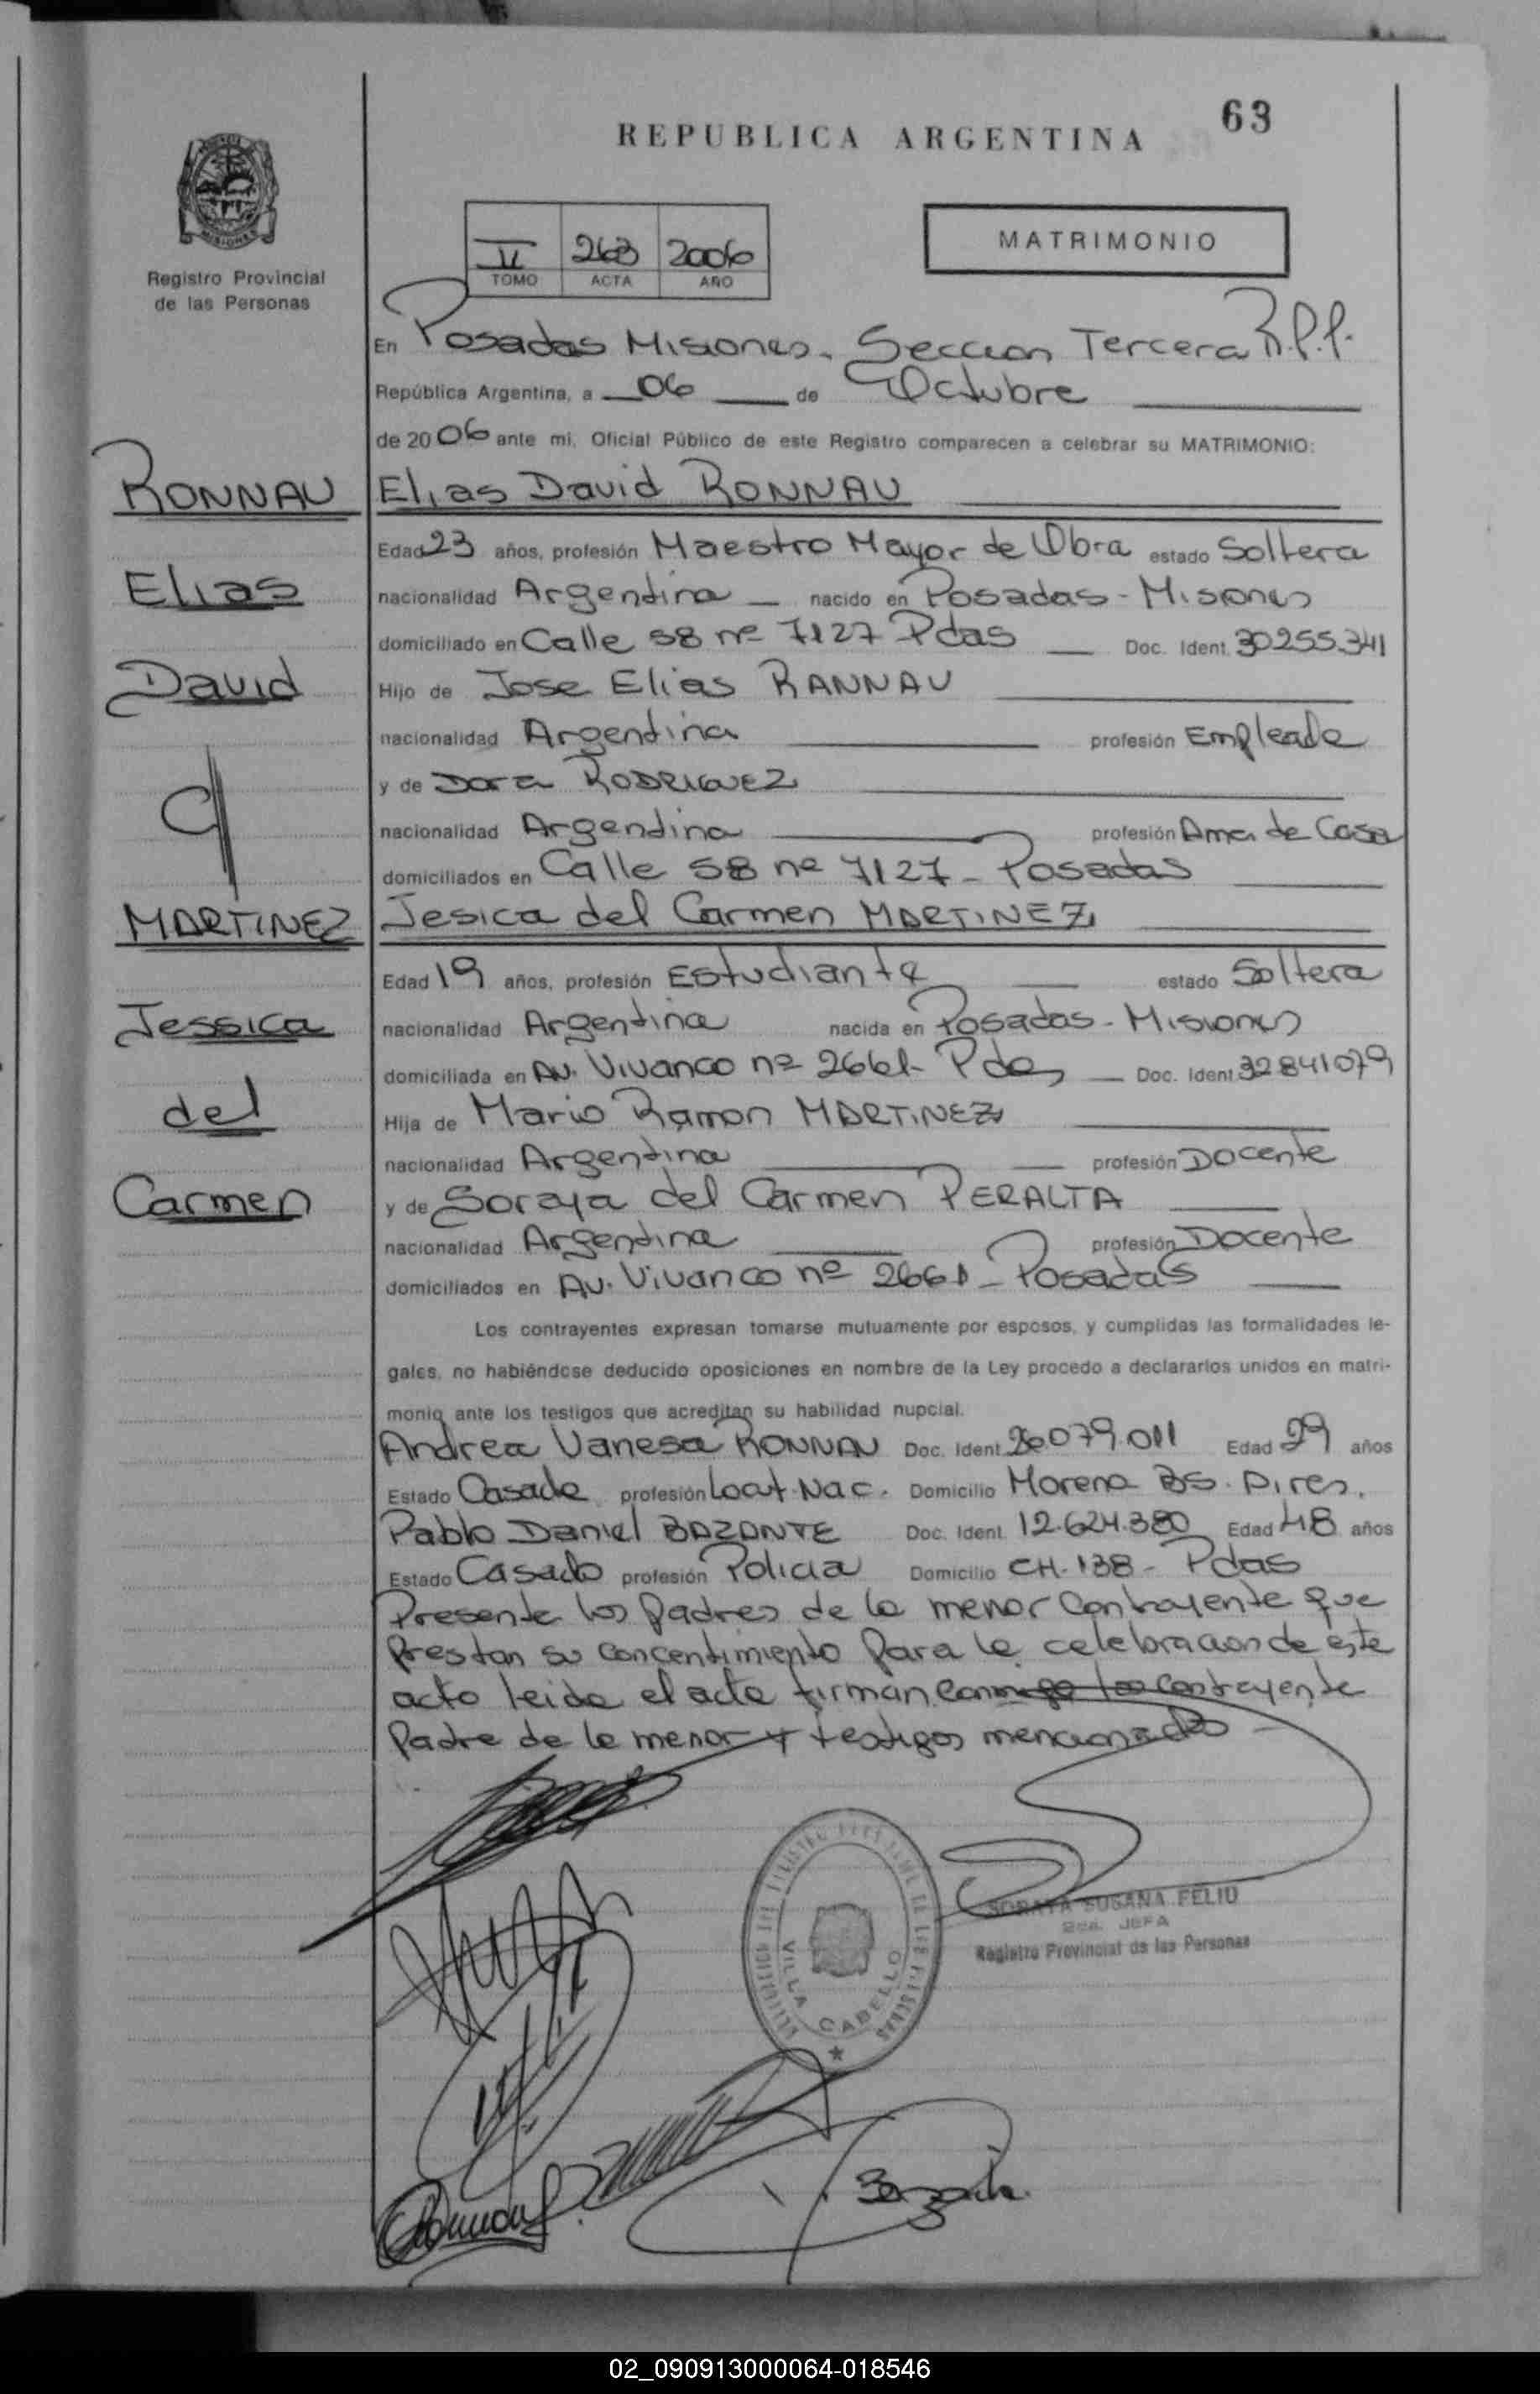 63
REPUBLICA ARGENTINA
MATRIMONIO
II 263 2006
TOMO ACTA AÑO
MISIONES
Registro Provincial
de las Personas
En Posadas Misiones. Seccion Tercera R.P.P.
República Argentina, a 06 de Octubre
de 2006 ante mi, Oficial Público de este Registro comparecen a celebrar su MATRIMONIO:
RONNAU
Elias
David
c/
MARTINEZ
Jessica
del
Carmen
Elias David RONNAU
Edad 23 años, profesión Maestro Mayor de Obra estado Soltera
nacionalidad Argentina nacido en Posadas - Misiones
domiciliado en Calle 58 nº 7127 Pdas Doc. Ident. 30255.341
Hijo de Jose Elias RANNAU
nacionalidad Argentina profesión Empleada
y de Dora RODRIGUEZ
nacionalidad Argentina profesión Ama de Casa
domiciliados en Calle 58 nº 7127 - Posadas
Jesica del Carmen MARTINEZ
Edad 19 años, profesión Estudiante estado Soltera
nacionalidad Argentina nacida en Posadas - Misiones
domiciliada en Av. Vivanco nº 2661- Pdas Doc. Ident. 32841079
Hija de Mario Ramon MARTINEZ
nacionalidad Argentina profesión Docente
y de Soraya del Carmen PERALTA
nacionalidad Argentina profesión Docente
domiciliados en Av. Vivanco nº 2661 - Posadas
Los contrayentes expresan tomarse mutuamente por esposos, y cumplidas las formalidades le-
gales, no habiéndose deducido oposiciones en nombre de la Ley procedo a declararlos unidos en matri-
monio ante los testigos que acreditan su habilidad nupcial.
Andrea Vanesa RONNAU Doc. Ident. 26.079.011 Edad 29 años
Estado Casada profesión Locut. Nac. Domicilio Moreno BS. Aires.
Pablo Daniel BAZANTE Doc. Ident. 12.624.380 Edad 48 años
Estado Casado profesión Policia Domicilio CH. 138 - Pdas
Presente los padres de la menor Contrayente que
prestan su concentimiento para la celebracion de este
acto leida el acta firman conmigo los contrayente
Padre de la menor y testigos mencionados
VILLA CABELLO
SORAYA SUSANA FELIU
2da. JEFA
Registro Provincial de las Personas
02_090913000064-018546